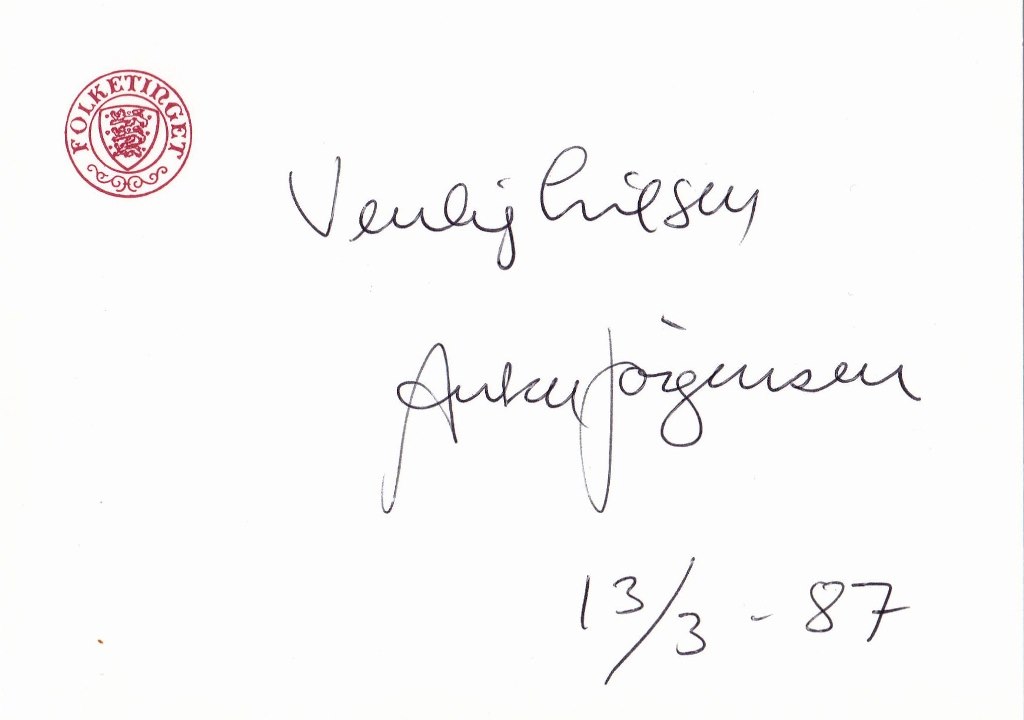 FOLKETINGET
Venlig hilsen
Anker Jörgensen
13/3 - 87